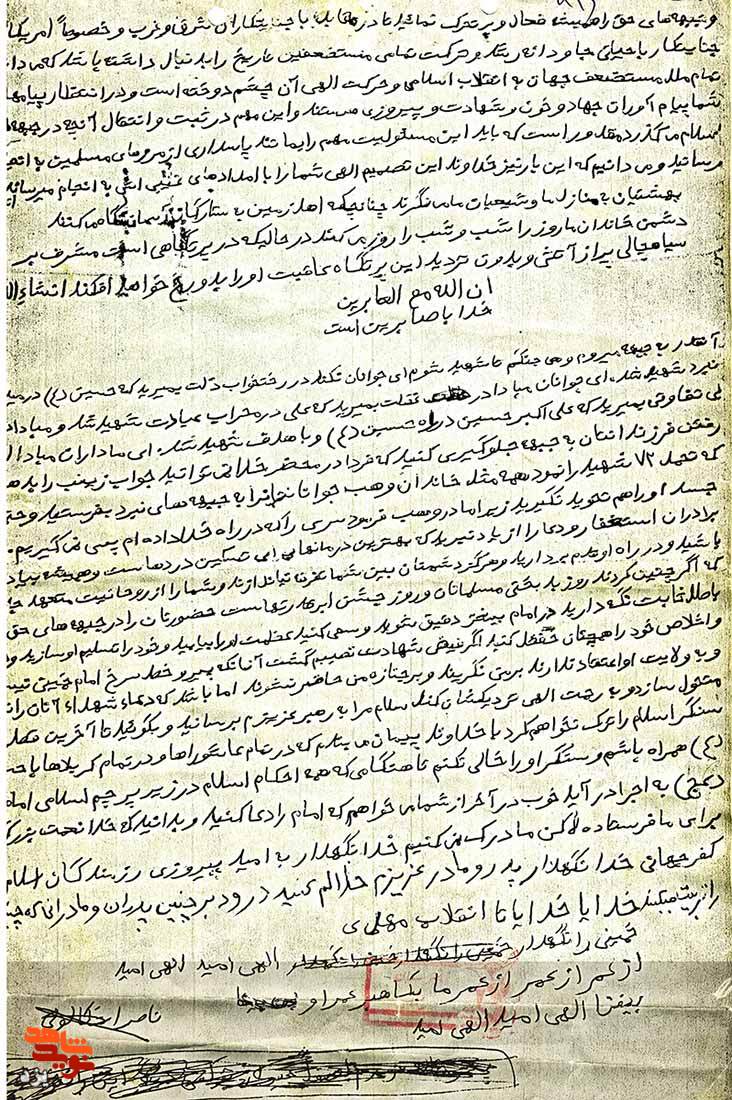 و جبهه‌های حق را همیشه فعال و پر تحرک نمائید تا در مقابله با جنایتکاران شرق و غرب و خصوصاً امریکا
جنایتکار با حیاتی جاودانه رشد و حرکت تمامی مستضعفین تاریخ را بدنبال داشته باشد که میدا
تمام ملل مستضعف جهان به انقلاب اسلامی و حرکت الهی آن چشم دوخته است و در انتظار پیامها
شما پیام آوران جهاد و خون و شهادت و پیروزی هستند و این مهم در ثبت و انتقال آنچه در جبهه
اسلام میگذرد مقدور است که باید این مسئولیت مهم را بمانند پاسداری از مرزهای مسلمین به انجا
رسانید و می دانیم که این بار نیز خداوند این تصمیم الهی شما را با امدادهای غیبی اش به انجام میرساند
بهشتیان به منازل ما و شیعیان ما می نگرند چنانچکه اهل زمین به ستارگان آسمان نگاه میکنند
دشمن خاندان ما روز را شب و شب را روز می کند در حالیکه در پرتگاهی است مشرف بر
سیاهچالی پر از آتش و بدون تردید این پرتگاه عاقبت او را بدوزخ خواهد افکند انشاءال
ان الله مع الصابرین
خدا با صابرین است
آنقدر به جبهه میروم و می جنگم تا شهید شوم ای جوانان نکند در رختخواب ذلت بمیرید که حسین (ع) در مید
نبرد شهید شد. ای جوانان مبادا در غفلت بمیرید که علی در محراب عبادت شهید شد و مبادا د
بی تفاوتی بمیرید که علی اکبر حسین در راه حسین (ع) و با هدف شهید شد. ای مادران مبادا از
رفتن فرزندانتان به جبهه جلوگیری کنید که فردا در محضر خدا نمی توانید جواب زینب را بده
که تحمل ۷۲ شهید را نمود همه مثل خاندان وهب جوانانتانرا به جبهه های نبرد بفرستید و حتی
جسد او را هم تحویل نگیرید زیرا مادر وهب فرمود سری را که در راه خدا داده ام پس نمی گیریم.
برادران استغفار و دعا را از یاد نبرید که بهترین درمانها برای تسکین دردهاست و همیشه بیاد
باشید و در راه او قدم بردارید و هرگز دشمنان بین شما تفرقه نیاندازند و شما را از روحانیت متعهد جد
که اگر چنین کردند روز بدبختی مسلمانان و روز جشن ابرقدرتهاست حضورتان را در جبهه های حق
باطل ثابت نگه دارید در امام بیشتر دقیق شوید و سعی کنید عظمت او را بیابید و خود را تسلیم او سازید و
و اخلاص خود را همچنان حفظ کنید اگر فیض شهادت نصیبم گشت آنانکه پیرو خط سرخ امام خمینی نیس
و به ولایت او اعتقاد ندارند بر من نگریند و بر جنازه من حاضر نشوند اما باشد که دماء شهداء آنان را نی
متحول سازد و به رحمت الهی نزدیکشان کند سلام مرا به رهبر عزیزم برسانید و بگوئید تا آخرین قطره
سنگر اسلام را ترک نخواهم کرد با خداوند پیمان می بندم که در تمام عاشوراها و در تمام کربلاها با حسی
(ع) همراه باشم و سنگر او را خالی نکنم تا هنگامی که همه احکام اسلام در زیر پرچم اسلامی اما
(عج) به اجرا در آید خوب در آخر از شما می خواهم که امام را دعا کنید و بدانید که خدا نعمت بزرگ
برای ما فرستاده لاکن ما درک نمی کنیم خدا نگهدار به امید پیروزی رزمندگان اسلام
کفر جهانی خدا نگهدار پدر و مادر عزیزم حلالم کنید درود بر چنین پدران و مادرانی که چنی
خدایا خدایا تا انقلاب مهدی
خمینی را نگهدار الهی امید الهی امید
از عمر از عمر از عمر ما بکاه و بر عمر او
بیفزا الهی امید الهی امید
ناصر
شاهد
نوید